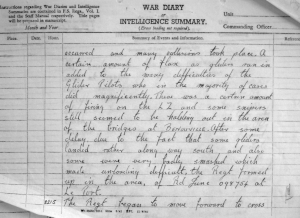 Instructions regarding War Diaries and Intelligence
Summaries are contained in F.S. Regs., Vol. I.
and the Staff Manual respectively. Title pages
will be prepared in manuscript.
WAR DIARY
or
INTELLIGENCE SUMMARY.
(Erase heading not required).
Month and Year
Unit
Commanding Officer
Place Date Hour
Summary of Events and Information
occurred and many collisions took place. A
certain amount of flak as gliders ran in
added to the many difficulties of the
Glider Pilots who in the majority of cases
did magnificently. There was a certain amount
of firing on the LZ and some snipers
still seemed to be holding out in the area
of the bridges at Benouville. After some
delay due to the fact that some gliders
landed rather long way south, and also
some were very badly smashed which
made unloading difficult, the Regt formed
up in the area, of Rd June
Le Port.
2215 The Regt began to move forward to cross